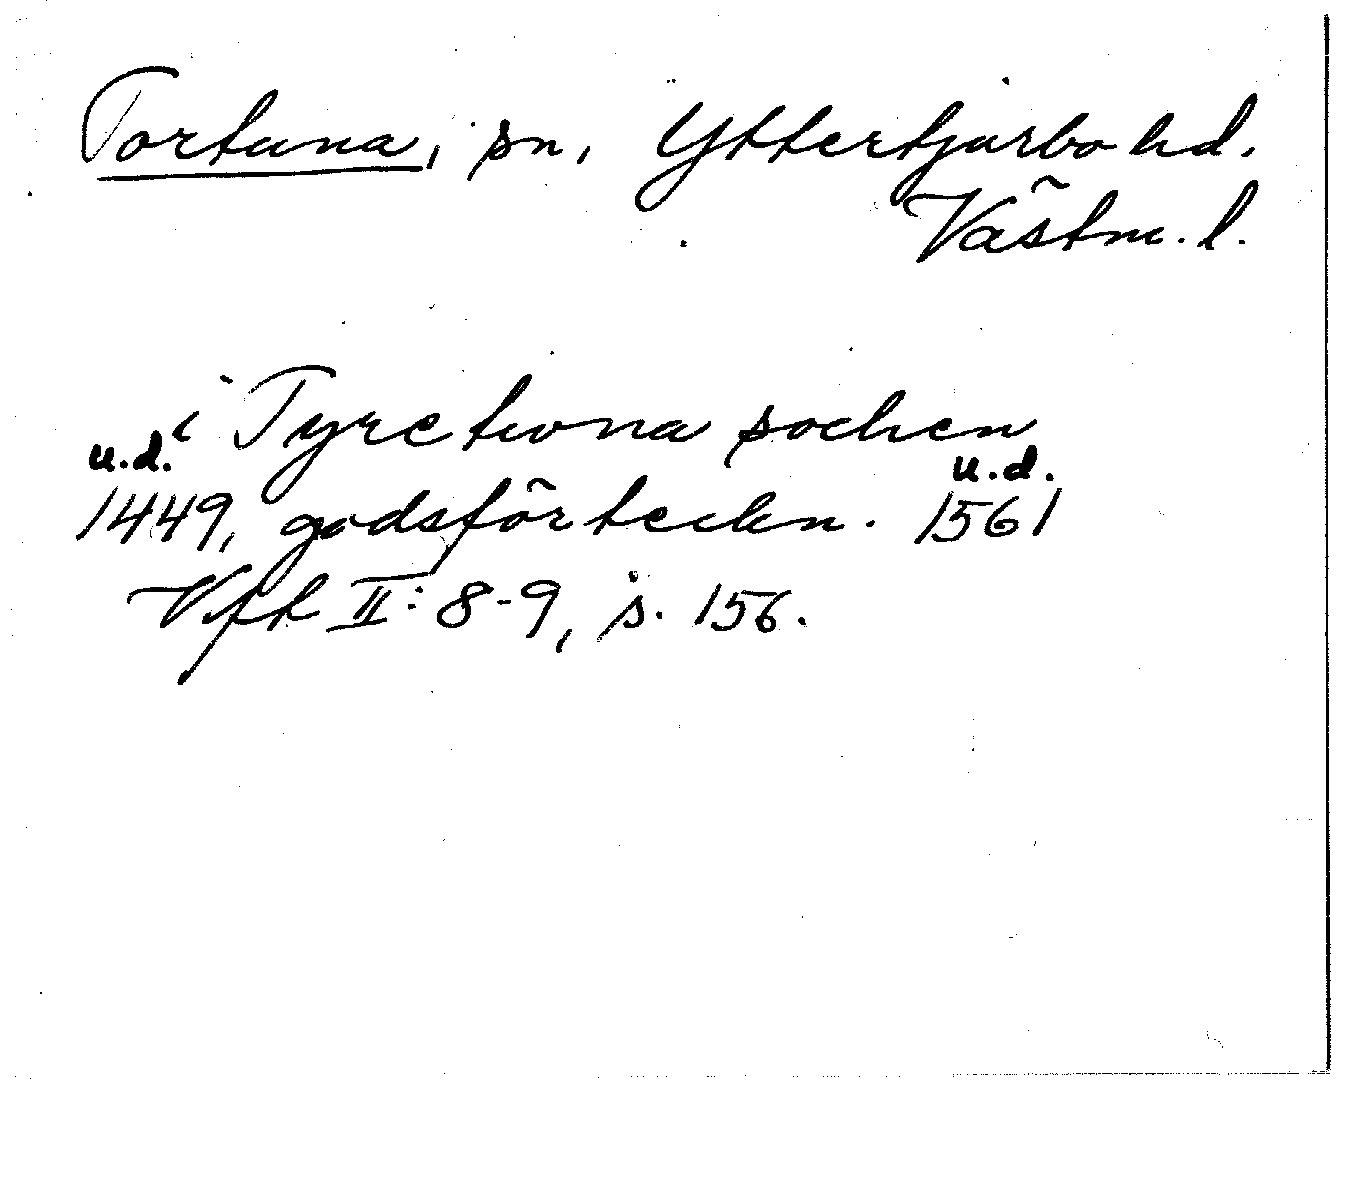 Tortuna, sn, Yttertjurbo hd.
Västm. l.
i Tyretwna sochen
u.d. u.d.
1449, godsförteckn. 1561
Vft II: 8-9, s. 156.